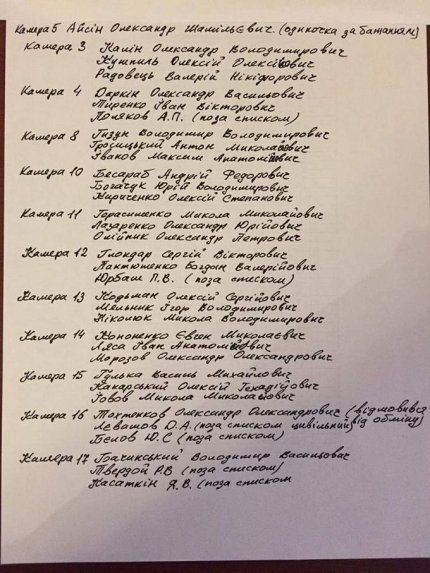 Камера 5 Айсін Олександр Шамільєвич. (одиночка за бажанням)
Камера 3 Калін Олександр Володимирович
Кушпиль Олексій Олексійович
Радовець Валерій Нікіфорович
Камера 4 Даркін Олександр Васильович
Пиренко Іван Вікторович
Поляков А.П. (поза списком)
Камера 8 Гиздун Володимир Володимирович
Гросицький Антон Миколайович
Іваков Максим Анатолійович
Камера 10 Бесараб Андрій Федорович
Богачук Юрій Володимирович
Кириченко Олексій Степанович
Камера 11 Герасименко Микола Миколайович
Лазаренко Олександр Юрійович
Олійник Олександр Петрович
Камера 12 Глондар Сергій Вікторович
Пантюшенко Богдан Валерійович
Юрбаш П.В. (поза списком)
Камера 13 Кодьман Олексій Сергійович
Мельник Ігор Володимирович
Ніколюк Микола Володимирович
Камера 14 Кононенко Євген Миколаєвич
Ляса Іван Анатолійович
Морозов Олександр Олександрович
Камера 15 Гулька Василь Михайлович
Какарський Олексій Генадійович
Говов Микола Миколайович
Камера 16 Тохтенков Олександр Олександрович (відмовився
Левашов О.А. (поза списком цивільний від обміну)
Бєлов Ю.С (поза списком)
Камера 17 Гоачинський Володимир Васильович
Твердой Р.В (поза списком)
Касаткін Я.В. (поза списком